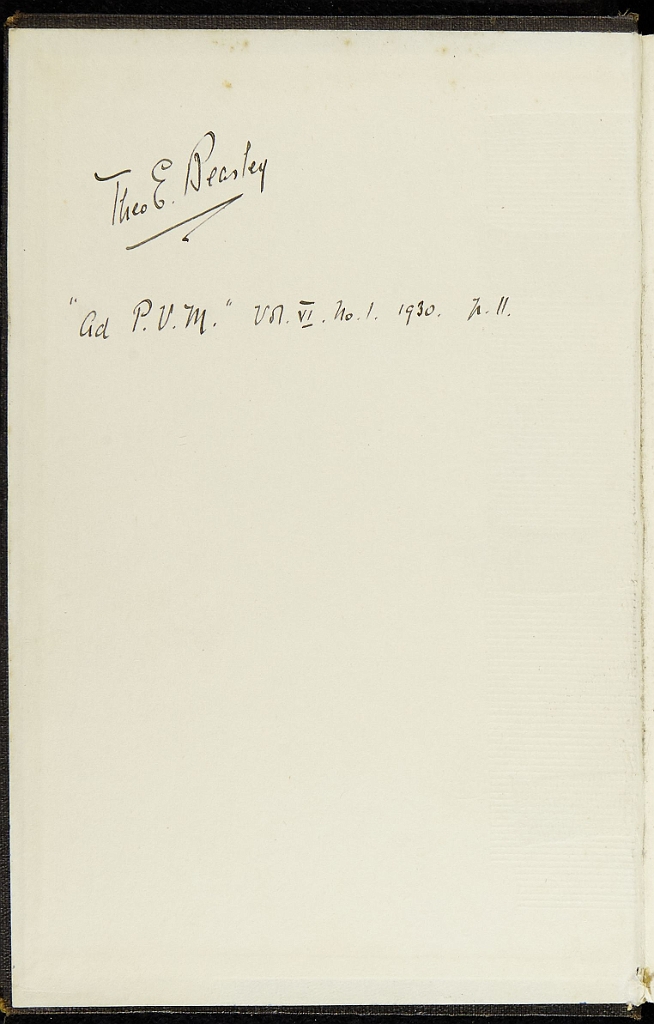 Theo E. Beasley
"Ad P.V.M." Vol. VI. No. 1. 1930. p. 11.